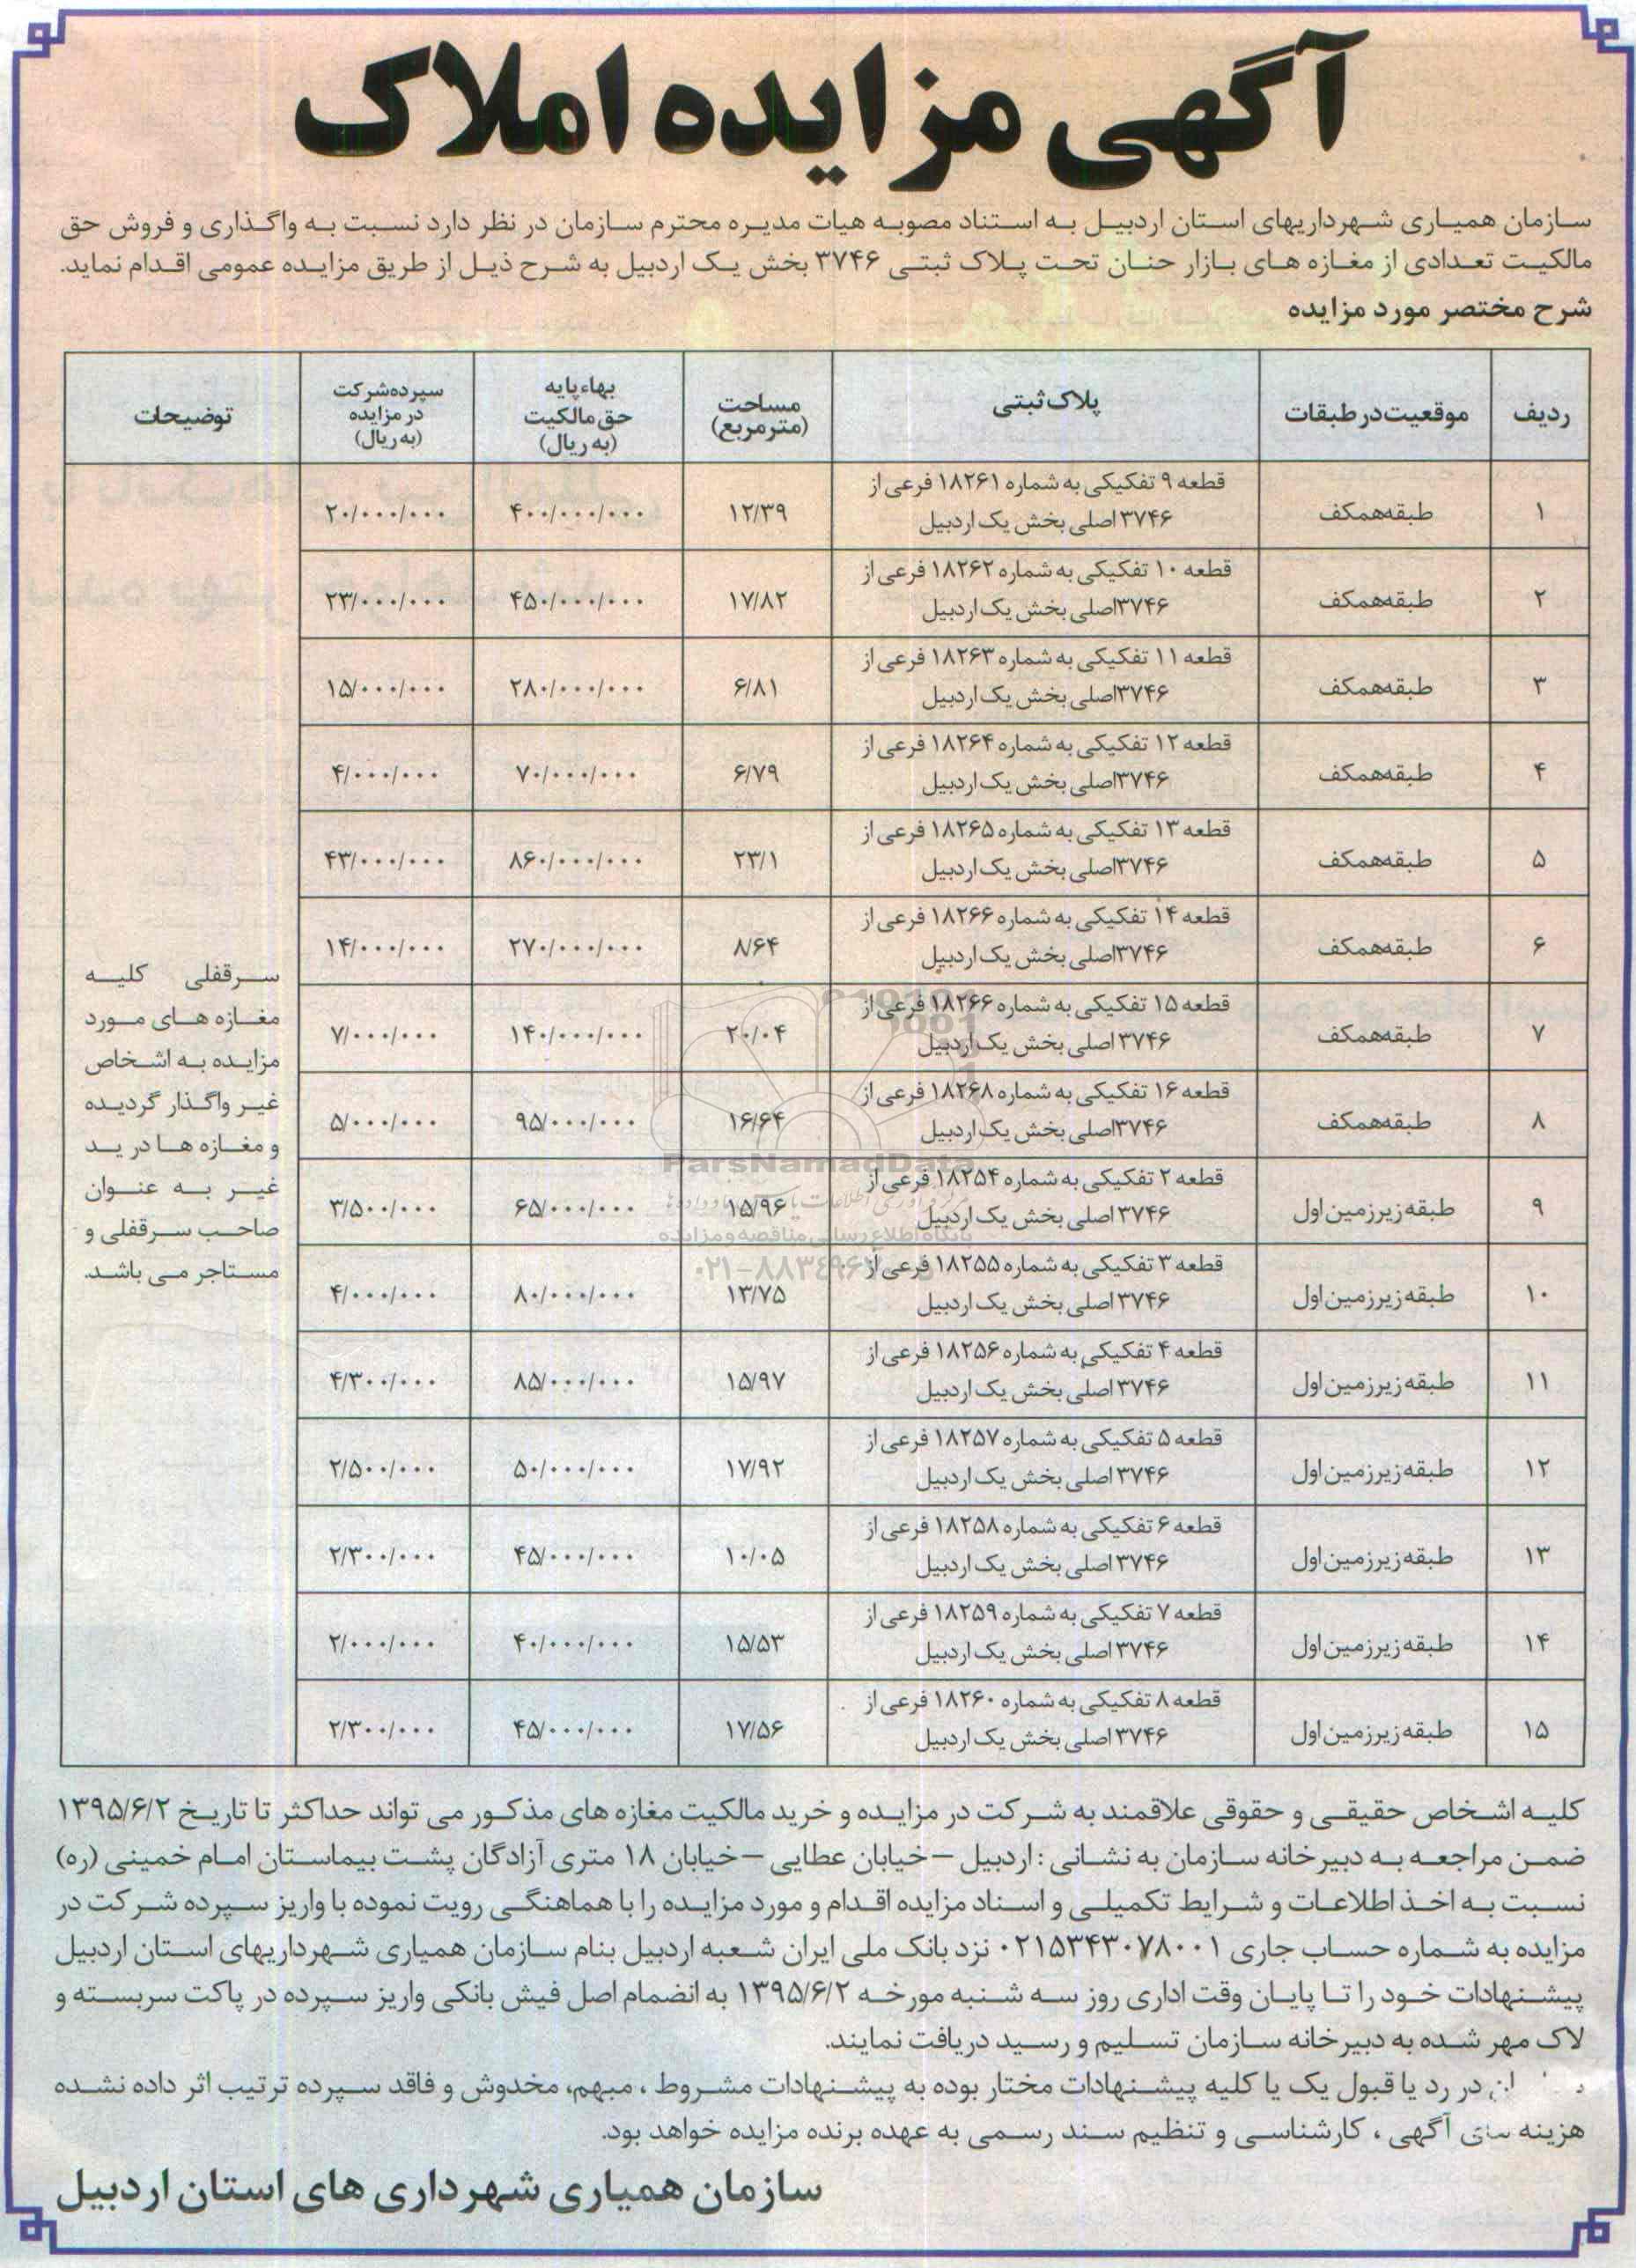 آگهی مزایده املاک
سازمان همیاری شهرداریهای استان اردبیل به استناد مصوبه هیات مدیره محترم سازمان در نظر دارد نسبت به واگذاری و فروش حق
مالکیت تعدادی از مغازه های بازار حنان تحت پلاک ثبتی ۳۷۴۶ بخش یک اردبیل به شرح ذیل از طریق مزایده عمومی اقدام نماید.
شرح مختصر مورد مزایده
ردیف موقعیت در طبقات پلاک ثبتی مساحت (مترمربع) بهاء پایه حق مالکیت (به ریال) سپرده شرکت در مزایده (به ریال) توضیحات
۱ طبقه همکف قطعه ۹ تفکیکی به شماره ۱۸۲۶۱ فرعی از ۳۷۴۶ اصلی بخش یک اردبیل ۱۲/۳۹ ۴۰۰/۰۰۰/۰۰۰ ۲۰/۰۰۰/۰۰۰
۲ طبقه همکف قطعه ۱۰ تفکیکی به شماره ۱۸۲۶۲ فرعی از ۳۷۴۶اصلی بخش یک اردبیل ۱۷/۸۲ ۴۵۰/۰۰۰/۰۰۰ ۲۳/۰۰۰/۰۰۰
۳ طبقه همکف قطعه ۱۱ تفکیکی به شماره ۱۸۲۶۳ فرعی از ۳۷۴۶اصلی بخش یک اردبیل ۶/۸۱ ۲۸۰/۰۰۰/۰۰۰ ۱۵/۰۰۰/۰۰۰
۴ طبقه همکف قطعه ۱۲ تفکیکی به شماره ۱۸۲۶۴ فرعی از ۳۷۴۶اصلی بخش یک اردبیل ۶/۷۹ ۷۰/۰۰۰/۰۰۰ ۴/۰۰۰/۰۰۰
۵ طبقه همکف قطعه ۱۳ تفکیکی به شماره ۱۸۲۶۵ فرعی از ۳۷۴۶اصلی بخش یک اردبیل ۲۳/۱ ۸۶۰/۰۰۰/۰۰۰ ۴۳/۰۰۰/۰۰۰
۶ طبقه همکف قطعه ۱۴ تفکیکی به شماره ۱۸۲۶۶ فرعی از ۳۷۴۶اصلی بخش یک اردبیل ۸/۶۴ ۲۷۰/۰۰۰/۰۰۰ ۱۴/۰۰۰/۰۰۰
۷ طبقه همکف قطعه ۱۵ تفکیکی به شماره ۱۸۲۶۶ فرعی از ۳۷۴۶ اصلی بخش یک اردبیل ۲۰/۰۴ ۱۴۰/۰۰۰/۰۰۰ ۷/۰۰۰/۰۰۰
۸ طبقه همکف قطعه ۱۶ تفکیکی به شماره ۱۸۲۶۸ فرعی از ۳۷۴۶اصلی بخش یک اردبیل ۱۶/۶۴ ۹۵/۰۰۰/۰۰۰ ۵/۰۰۰/۰۰۰
۹ طبقه زیرزمین اول قطعه ۲ تفکیکی به شماره ۱۸۲۵۴ فرعی از ۳۷۴۶ اصلی بخش یک اردبیل ۱۵/۹۶ ۶۵/۰۰۰/۰۰۰ ۳/۵۰۰/۰۰۰
۱۰ طبقه زیرزمین اول قطعه ۳ تفکیکی به شماره ۱۸۲۵۵ فرعی از ۳۷۴۶ اصلی بخش یک اردبیل ۱۳/۷۵ ۸۰/۰۰۰/۰۰۰ ۴/۰۰۰/۰۰۰
۱۱ طبقه زیرزمین اول قطعه ۴ تفکیکی به شماره ۱۸۲۵۶ فرعی از ۳۷۴۶ اصلی بخش یک اردبیل ۱۵/۹۷ ۸۵/۰۰۰/۰۰۰ ۴/۳۰۰/۰۰۰
۱۲ طبقه زیرزمین اول قطعه ۵ تفکیکی به شماره ۱۸۲۵۷ فرعی از ۳۷۴۶ اصلی بخش یک اردبیل ۱۷/۹۲ ۵۰/۰۰۰/۰۰۰ ۲/۵۰۰/۰۰۰
۱۳ طبقه زیرزمین اول قطعه ۶ تفکیکی به شماره ۱۸۲۵۸ فرعی از ۳۷۴۶ اصلی بخش یک اردبیل ۱۰/۰۵ ۴۵/۰۰۰/۰۰۰ ۲/۳۰۰/۰۰۰
۱۴ طبقه زیرزمین اول قطعه ۷ تفکیکی به شماره ۱۸۲۵۹ فرعی از ۳۷۴۶ اصلی بخش یک اردبیل ۱۵/۵۳ ۴۰/۰۰۰/۰۰۰ ۲/۰۰۰/۰۰۰
۱۵ طبقه زیرزمین اول قطعه ۸ تفکیکی به شماره ۱۸۲۶۰ فرعی از ۳۷۴۶ اصلی بخش یک اردبیل ۱۷/۵۶ ۴۵/۰۰۰/۰۰۰ ۲/۳۰۰/۰۰۰
سرقفلی کلیه
مغازه های مورد
مزایده به اشخاص
غیر واگذار گردیده
و مغازه ها در ید
غیر به عنوان
صاحب سرقفلی و
مستاجر می باشد.
ParsNamadData
پایگاه اطلاع رسانی مناقصه و مزایده
کلیه اشخاص حقیقی و حقوقی علاقمند به شرکت در مزایده و خرید مالکیت مغازه های مذکور می تواند حداکثر تا تاریخ ۱۳۹۵/۶/۲
ضمن مراجعه به دبیرخانه سازمان به نشانی : اردبیل – خیابان عطایی – خیابان ۱۸ متری آزادگان پشت بیماستان امام خمینی (ره)
نسبت به اخذ اطلاعات و شرایط تکمیلی و اسناد مزایده اقدام و مورد مزایده را با هماهنگی رویت نموده با واریز سپرده شرکت در
مزایده به شماره حساب جاری ۰۲۱۵۳۴۳۰۷۸۰۰۱ نزد بانک ملی ایران شعبه اردبیل بنام سازمان همیاری شهرداریهای استان اردبیل
پیشنهادات خود را تا پایان وقت اداری روز سه شنبه مورخه ۱۳۹۵/۶/۲ به انضمام اصل فیش بانکی واریز سپرده در پاکت سربسته و
لاک مهر شده به دبیرخانه سازمان تسلیم و رسید دریافت نمایند.
در رد یا قبول یک یا کلیه پیشنهادات مختار بوده به پیشنهادات مشروط ، مبهم، مخدوش و فاقد سپرده ترتیب اثر داده نشده
هزینه های آگهی ، کارشناسی و تنظیم سند رسمی به عهده برنده مزایده خواهد بود.
سازمان همیاری شهرداری های استان اردبیل